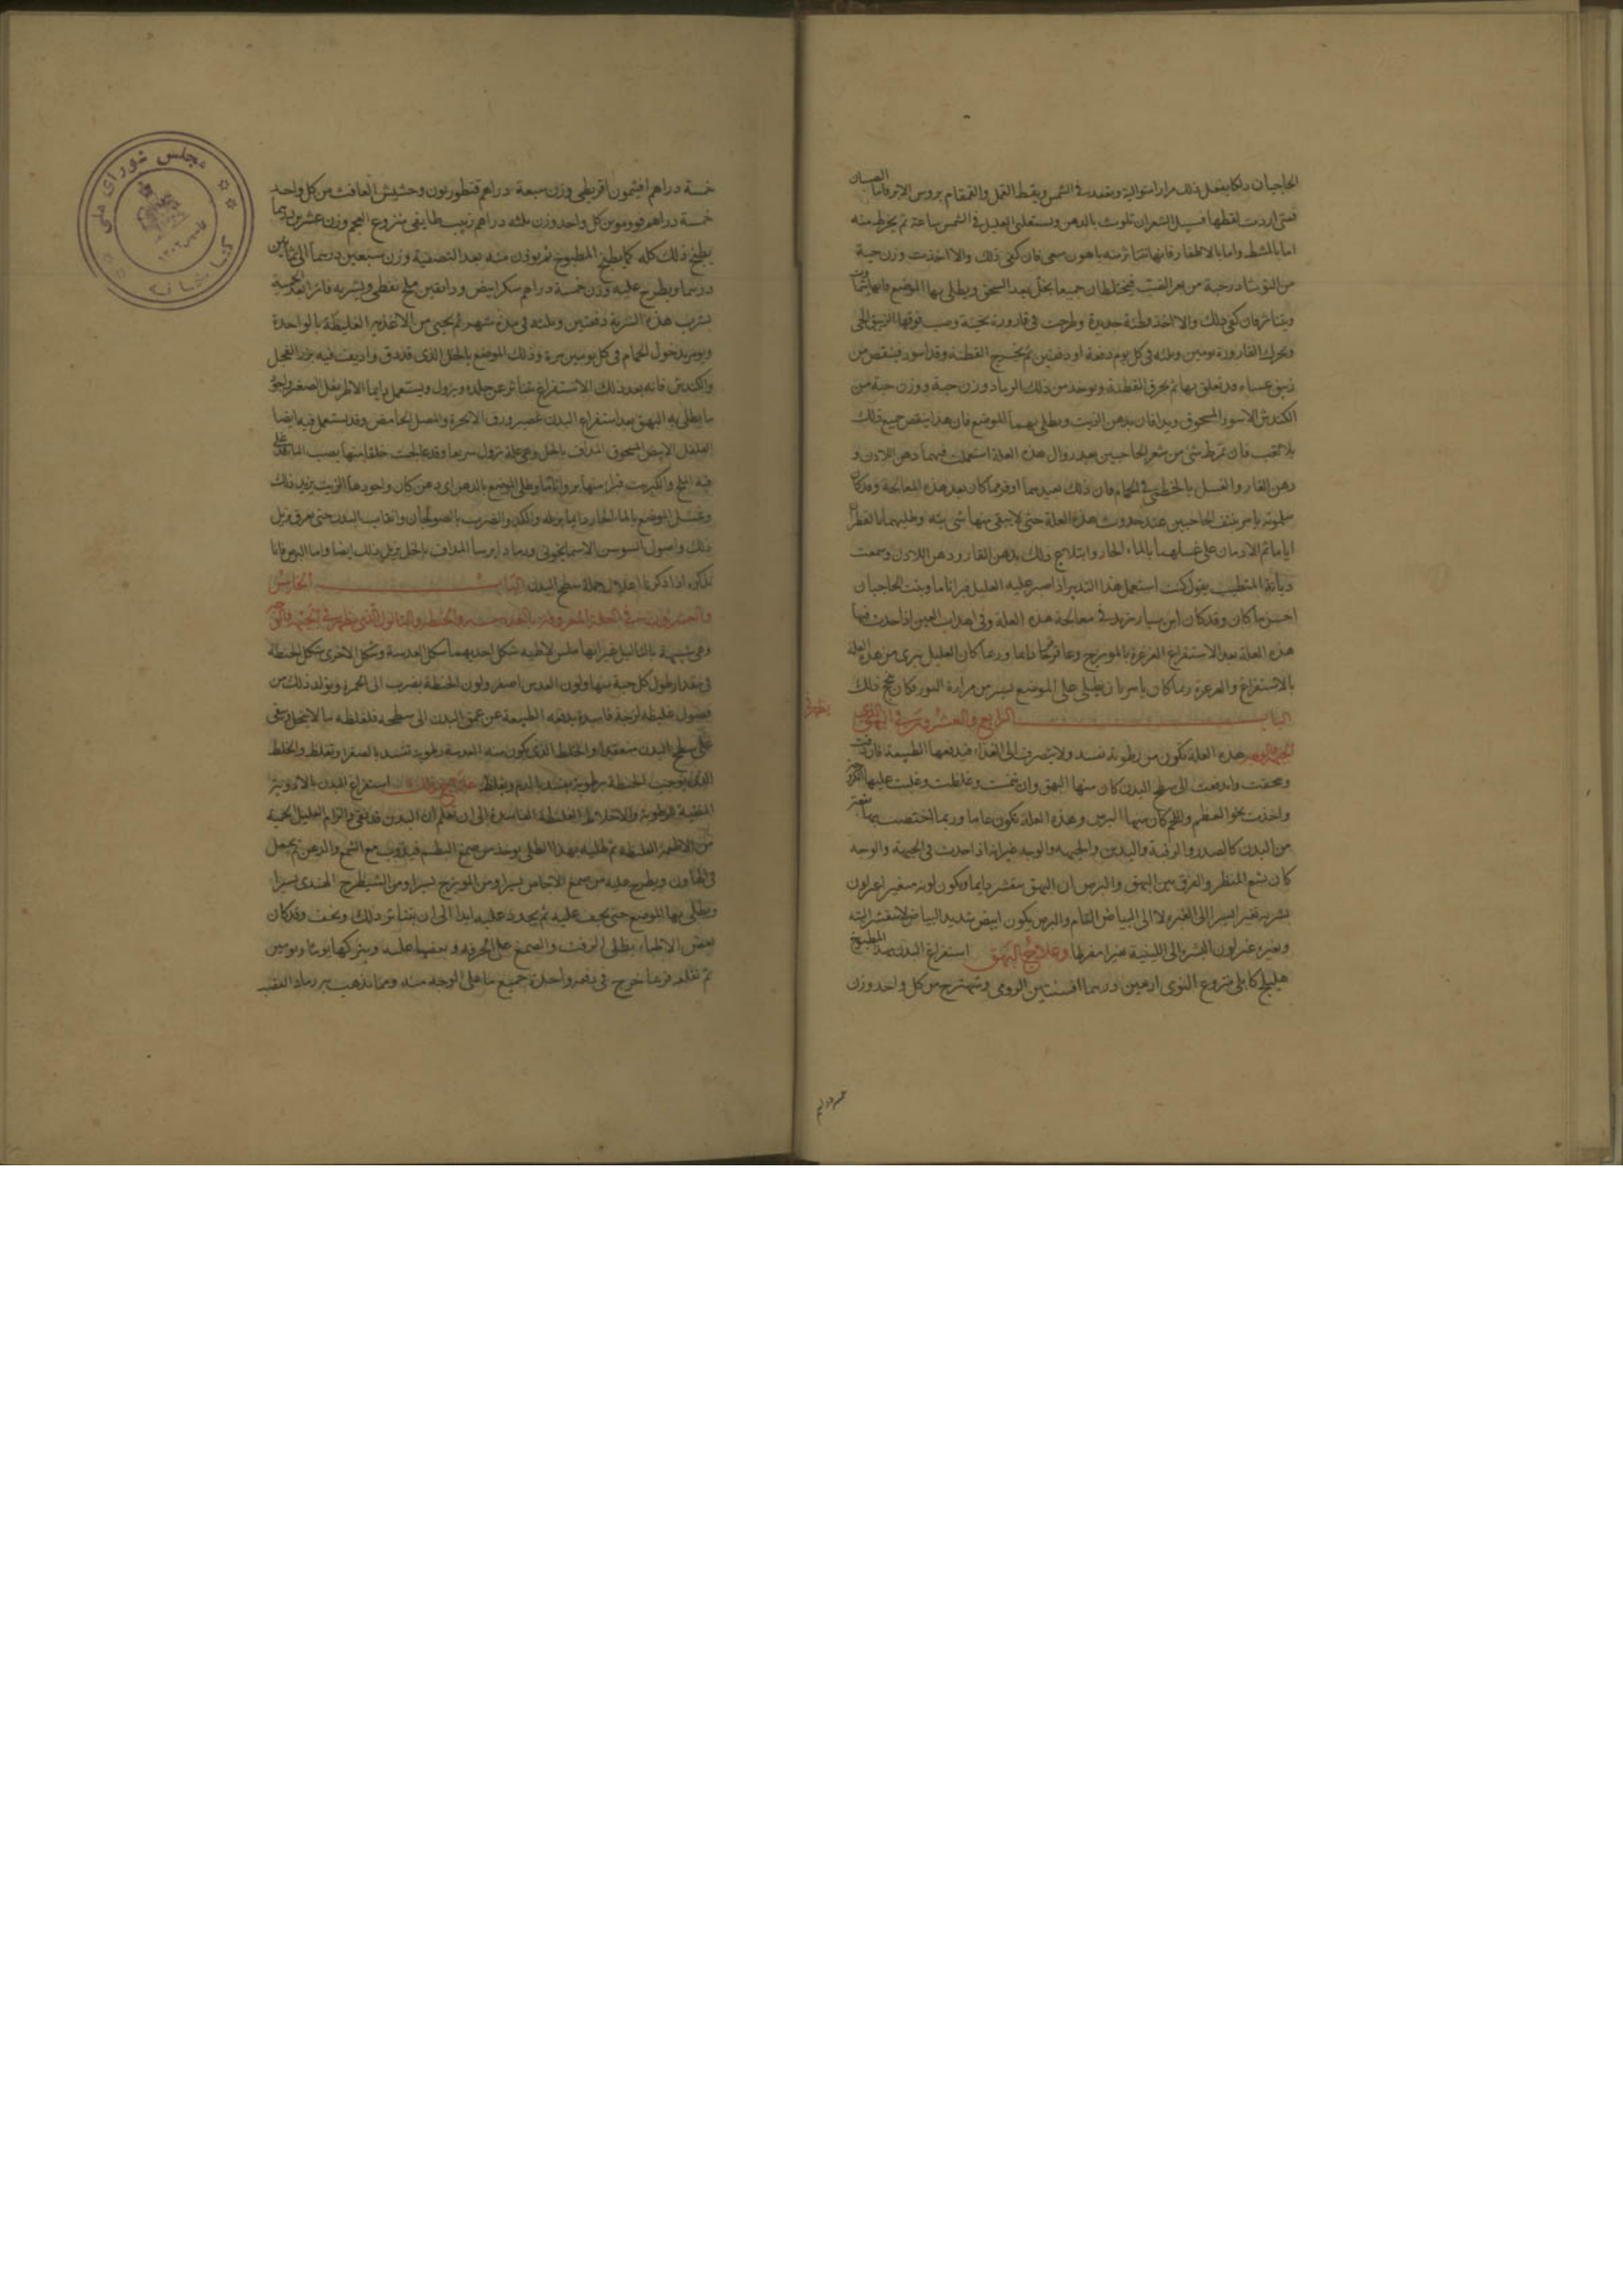 الحاجبان دلكا يفعل ذلك مرارا متوالية ويقعد في الشمس ويلقط القمل والقمقام بروس الابر فاما الصيبان
فمتى اردت لقطها فسبيل الشعر ان تلوث بالدهن ويستلقى العليل في الشمس ساعة ثم يخرط منه
اما بالمشط واما بالاظفار فانها تتناثر منه باهون سعى فان كفى ذلك والا اخذت وزن حبة
من النوشادر حبة من فيختلطان جميعا بخل بعد السحق ويطلى بها الموضع فانها
ويتناثر فان كفى ذلك والا اخذ قطنة جديدة وطرحت في قارورة وصب فوقها الزيبق الحى
وتحرك القارورة يومين وثلثة في كل يوم دفعة او دفعتين ثم يخرج القطنة وقد اسود فينقص من
زيبق عساه قد تعلق بها ثم يحرق القطنة ويوخذ من ذلك الرماد وزن حبة ووزن حبة من
الكندش الاسود المسحوق ويدافان بدهن الزيت ويطلى بهما الموضع فان هذا ينقص جميع ذلك
بلا تعب فان تمرط شئ من شعر الحاجبين بعد زوال هذه العلة استعملت فيهما دهن اللادن و
دهن الغار والغسل بالخطمى في الحمام فان ذلك يعيدهما اوفر مما كان بعد هذه المعالجة وقد كان
سلمويه يامر بنتف الحاجبين عند حدوث هذه العلة حتى لا يبقى منها شئ بتة وطليهما بالقطران
اياما ثم الادمان على غسلهما بالماء الحار وابتلاع ذلك بدهن الغار ودهن اللادن وسمعت
المتطبب يقول كنت استعمل هذا التدبير اذا صبر عليه العليل فبرا تاما ونبت الحاجبان
احسن ما كان وقد كان ابن سيار يزيد في معالجة هذه العلة وفي اهداب العين اذا حدث فيها
هذه العلة بعد الاستفراغ الغرغرة بالمويزج وعاقرقرحا دايما وربما كان العليل يبرى من هذه العلة
بالاستفراغ والغرغرة ربما كان يامر بان يطلى على الموضع يسير من مرارة الثور فكان ينجح ذلك
الباب الرابع والعشرون في البهق الذى
يظهر في
الجبهة والوجه هذه العلة تكون من رطوبة تفسد ولا يتصرف الى الغذاء فيدفعها الطبيعة فان
وعفنت واندفعت الى سطح البدن كان منها البهق وان نضجت وغلظت وغلبت عليها
واخذت نحو العظم واللحم كان منها البرص وهذه العلة تكون عاما وربما اختصت بها
من البدن كالصدر والرقبة واليدين والجبهة والوجه غير انه اذا حدث في الجبهة والوجه
كان بشع المنظر والفرق بين البهق والبرص ان البهق متقشر دايما ويكون لونه متغيرا عن لون
بشرته تغيرا يسيرا الى الغبرة لا الى البياض التام والبرص يكون ابيض شديد البياض لا يتقشر البتة
وتغيره عن لون البشرة الى اللبنية تغيرا مفرطا وعلاج البهق استفراغ البدن بهذا المطبوخ
هليلج كابلى منزوع النوى اربعين درهما افسنتين الرومى وشهترج من كل واحد وزن
خمسة دراهم افيثمون اقريطى وزن سبعة دراهم قنطوريون وحشيش الغافث من كل واحد
خمسة دراهم من كل واحد وزن ثلثة دراهم زبيب طايفى منزوع العجم وزن عشرين درهما
يطبخ ذلك كله كما يطبخ المطبوخ ثم يوخذ منه بعد التصفية وزن سبعين درهما الى ثمانين
درهما ويطرح عليه وزن خمسة دراهم سكر ابيض ودانقين ملح نفطى ويشربه فاترا بعد الحمية
يشرب هذه الشربة دفعتين وثلثة في مدة شهر ثم يحمى من الاغذية الغليظة بالواحدة
ويومر بدخول الحمام في كل يومين مرة وذلك الموضع بالخل الذى قد دق واديف فيه بزر الفجل
والكندش فانه بعد ذلك الاستفراغ يتناثر عن جلده ويزول ويستعمل دايما الاطريفل الصغير واجود
ما يطلى به البهق بعد استفراغ البدن عصير ورق الانجرة والبصل الحامض وقد يستعمل فيه ايضا
الفلفل الابيض المسحوق المداف بالخل وهى علة تزول سريعا وقد عالجت خلقا منها بصب الماء قد اغلى
فيه الملح والكبريت فبرا منها بروا تاما وطلى الموضع بالدهن اى دهن كان واجودها الزيت يزيد ذلك
وغسل الموضع بالماء الحار دايما يزيله والكد والضرب بالصولجان واتعاب البدن حتى يعرق يزيل
ذلك واصول السوسن الاسمانجونى ورماد المداف بالخل يزيل ذلك ايضا واما البرص فانا
نذكره اذا ذكرنا اعلال جملة سطح البدن الباب الخامس
والعشرون في العلة المعروفة بالعدسة والحنطة والثالول الذى يظهر في الجبهة
وهى شبيهة بالثاليل غير انها ملس لاطية شكل احديهما شكل العدسة وشكل الاخرى شكل الحنطة
في مقدار طول كل حبة منها ولون العدس اصفر ولون الحنطة يضرب الى الحمرة ويتولد ذلك من
فضول غليظة لزجة فاسدة يدفعه الطبيعة عن عمق البدن الى سطحه فلغلظه ما لا يتحلل ويبقى
على سطح البدن منعقدا والخلط الذى يكون منه العدسة رطوبة تفسد بالصفرا وتغلظ والخلط
الذى يوجب الحنطة رطوبة يفسد بالدم ويغلظ علاج ذلك استفراغ البدن بالادوية
المنقية للرطوبة والاخلاط الغليظة الفاسدة الى ان تعلم ان البدن قد نقى والزام العليل الحمية
من الاطعمة الغليظة ثم طليه بهذا الطلى يوخذ من صمغ البطم فيذوب مع الشمع والدهن ثم يجعل
في الهاون ويطرح عليه من صمغ الاجاص يسيرا ومن المويزج يسيرا ومن الشيطرج الهندى يسيرا
ويطلى بها الموضع حتى يجف عليه ثم يجدد عليه ابدا الى ان يتناثر ذلك ويجف وقد كان
بعض الاطباء يطلى الزفت والصمغ على الخرقة و عليه ويتركها يوما ويومين
ثم تقلعه فربما خرج في دفعة واحدة جميع ما على الوجه منه ومما يذهب به رماد
مجلس شورای ملی
کتابخانه